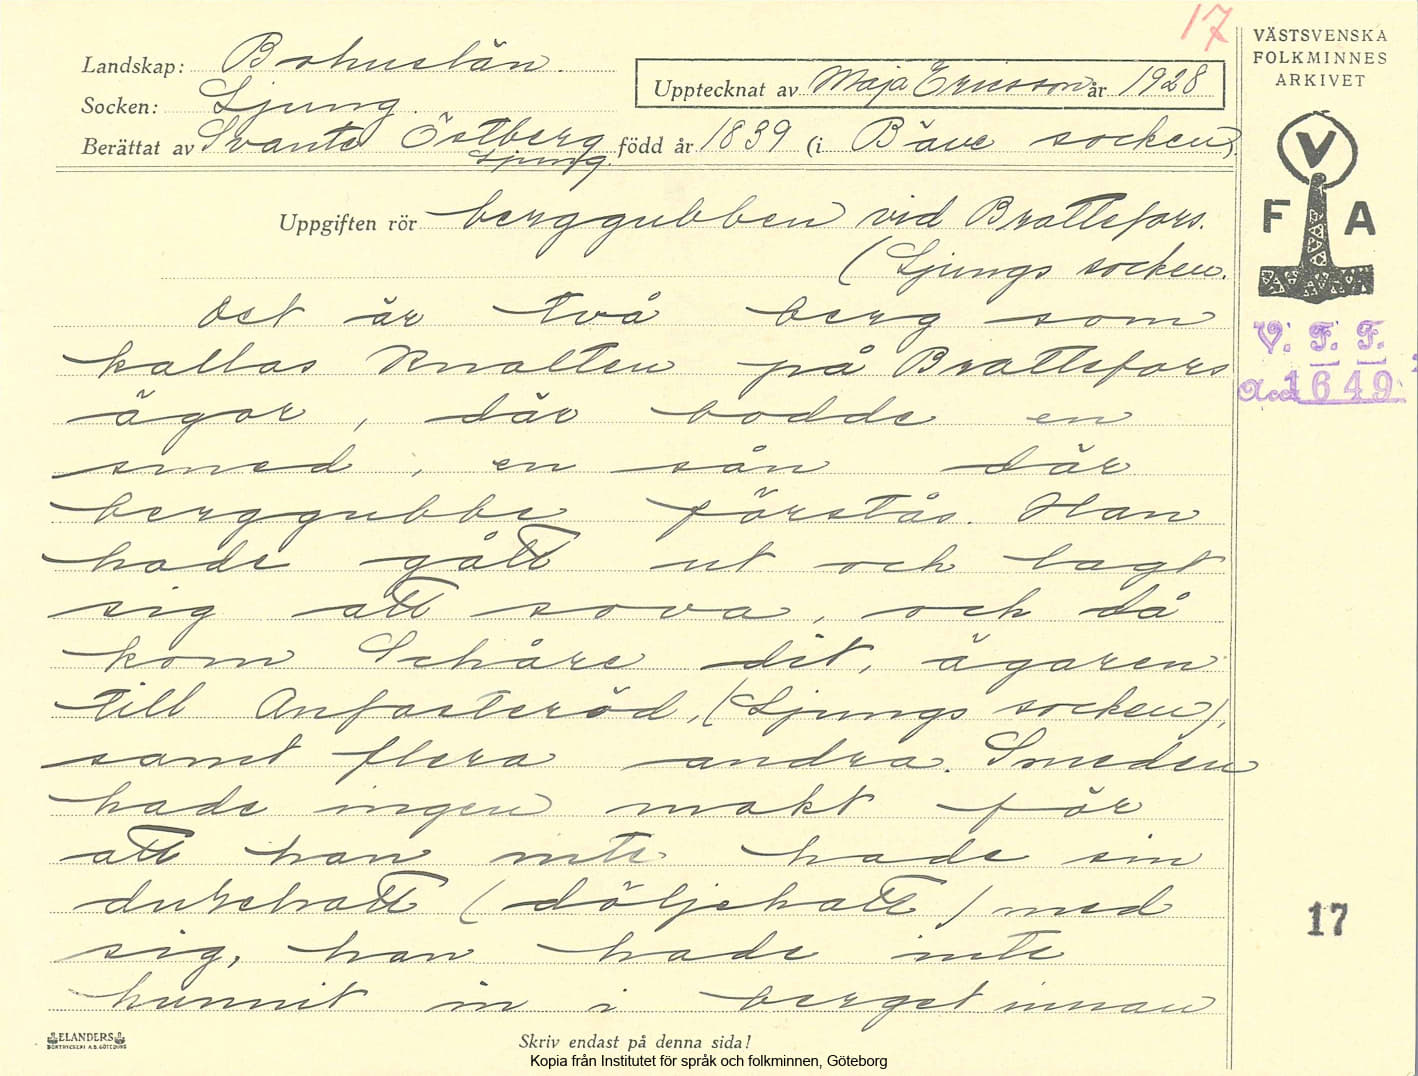 17
VÄSTSVENSKA
FOLKMINNES
ARKIVET
Landskap: Bohuslän.
Upptecknat av Maja Ericsson år 1928
Socken: Ljung.
Berättat av Svante Östberg född år 1839 (i Bäve socken).
Ljung.
V
F A
Uppgiften rör berggubben vid Brattefors.
(Ljungs socken.
Det är två berg som
kallas Knalten på Brattefors
ägor, där bodde en
smed, en sån där
berggubbe förstås. Han
hade gått ut och lagt
sig att sova, och då
kom Schåre dit, ägaren
till Anfasteröd, (Ljungs socken),
samt flera andra. Smeden
hade ingen makt för
att han inte hade sin
durehatt (döljehatt) med
sig, han hade inte
hunnit in i berget innan
V. F. F.
Acc 1649
17
ELANDERS
BOKTRYCKERI A.B. GÖTEBORG
Skriv endast på denna sida!
Kopia från Institutet för språk och folkminnen, Göteborg